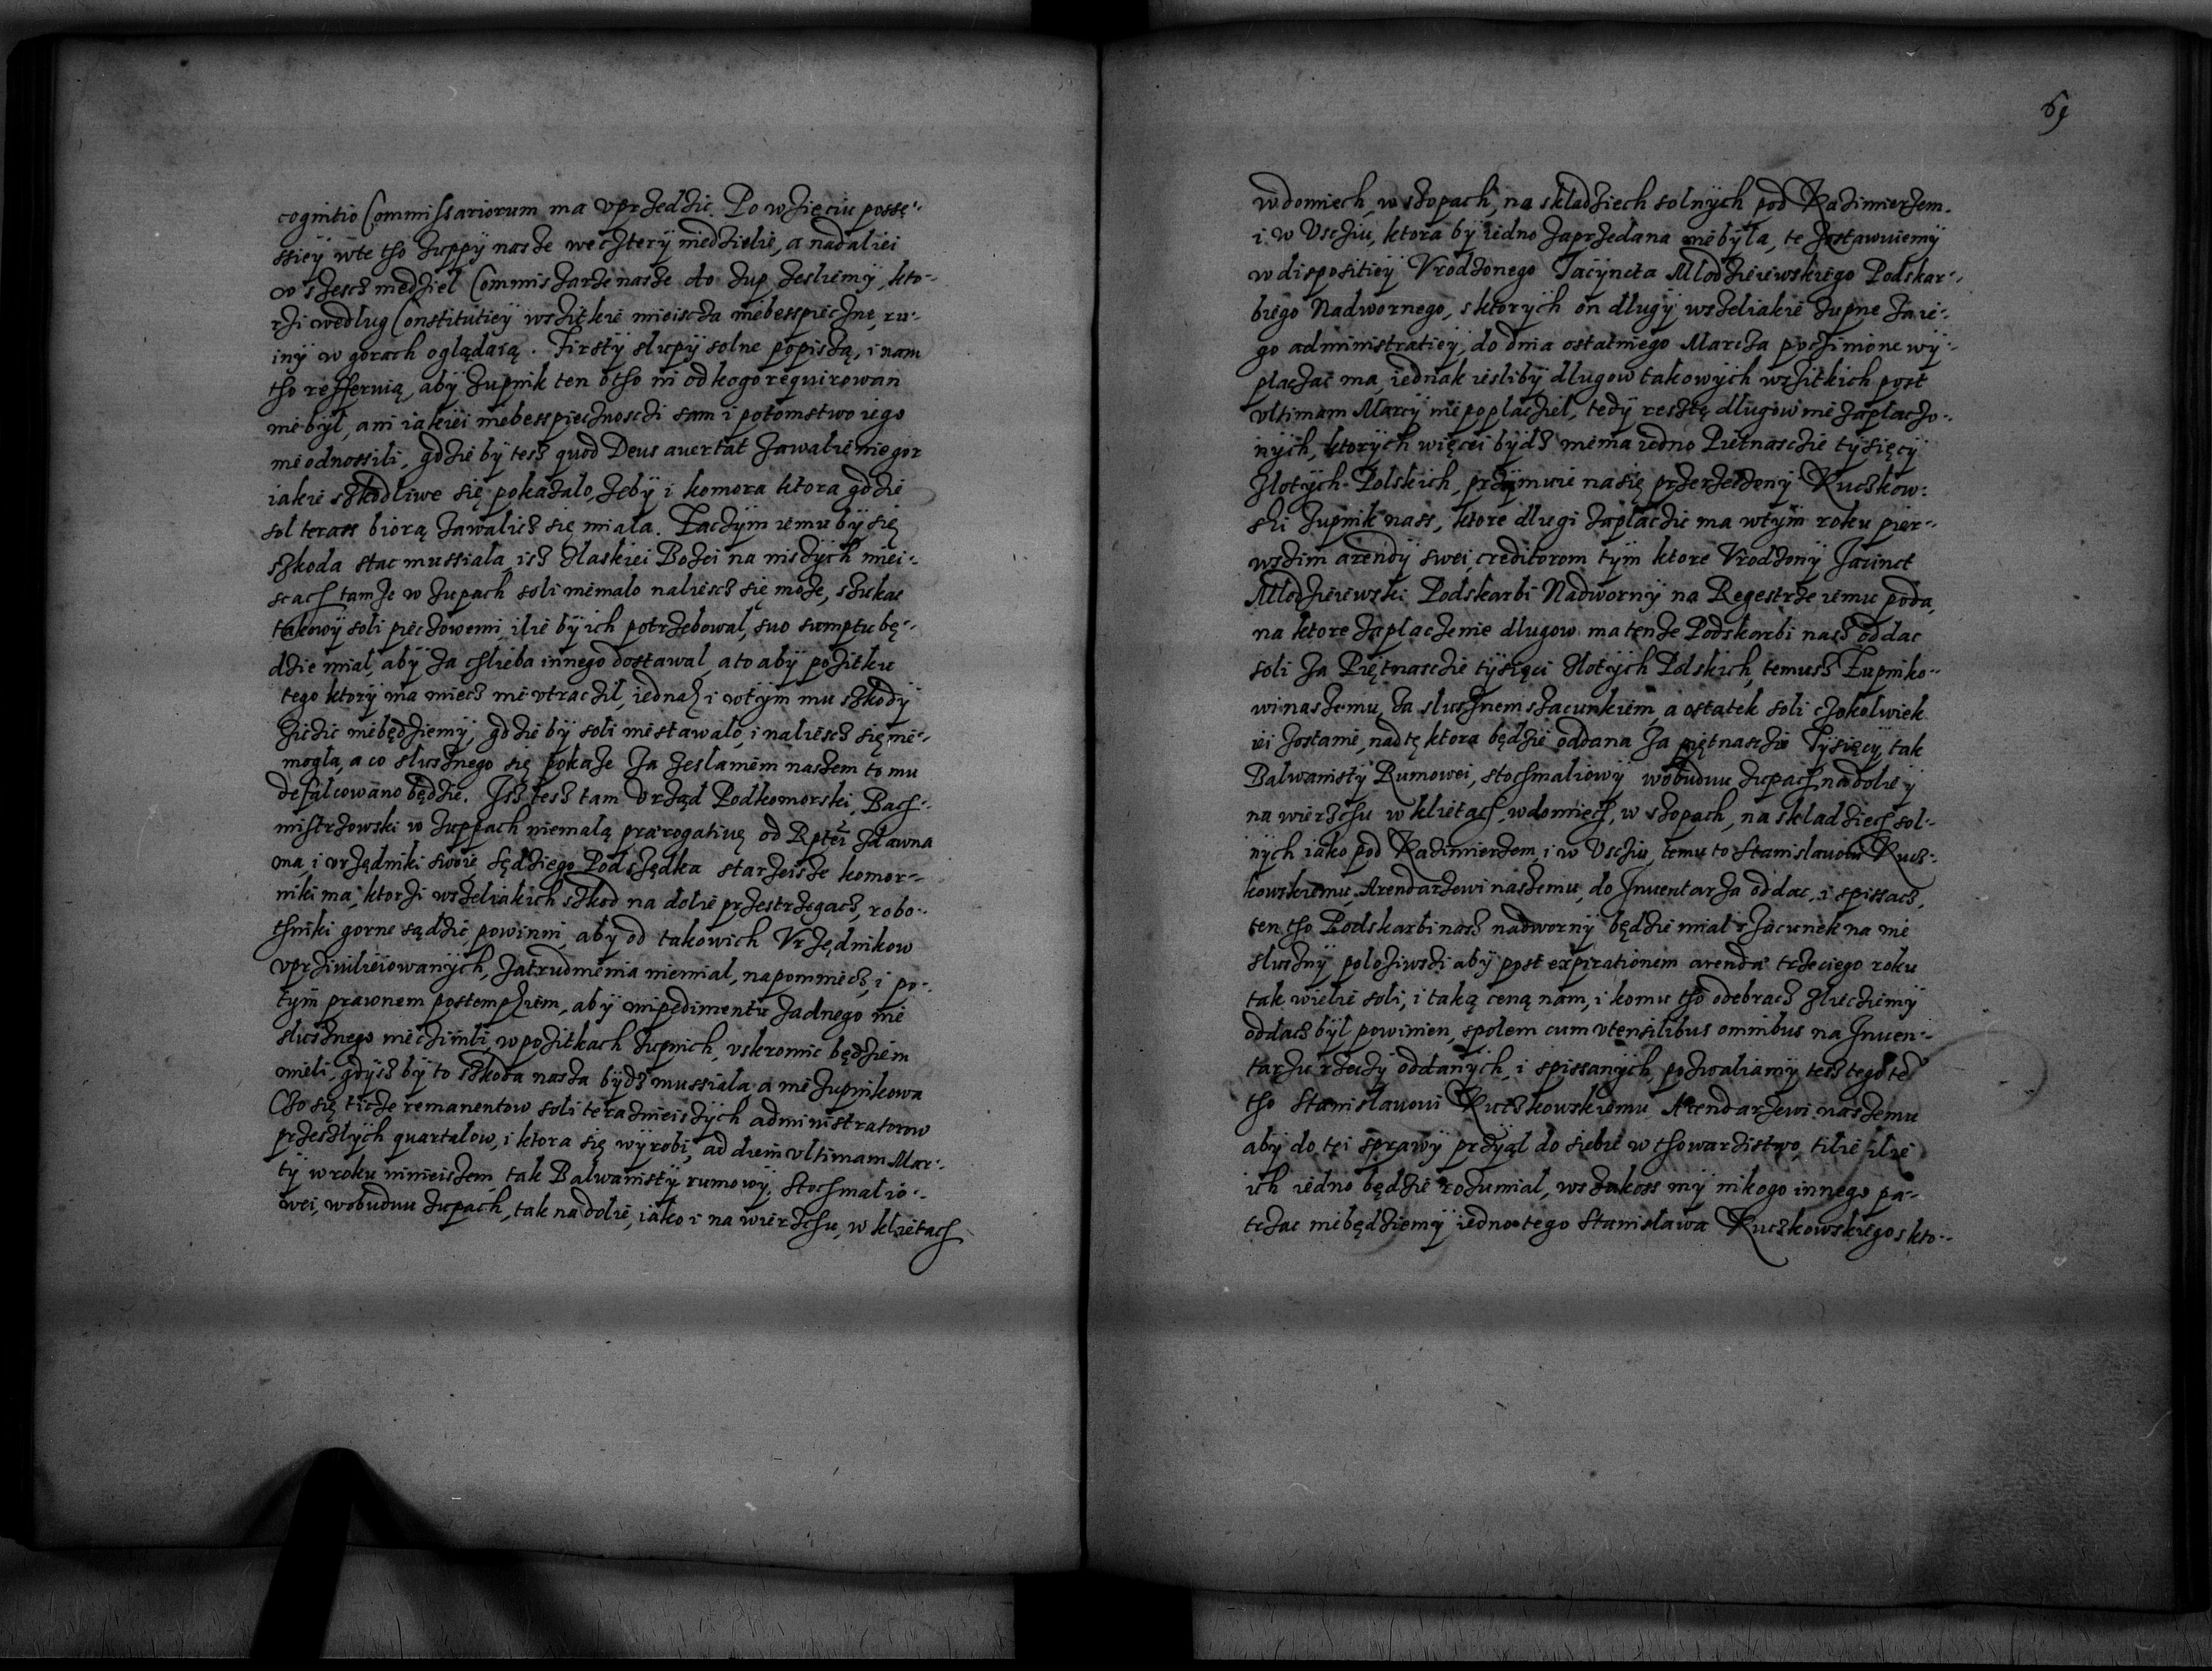 cognitio Commissariorum ma vprzedzic. Po wzięciu posse-
ssiey wte tho zuppy nasze we cztery niedzielie, a nadaliei
w szesc niedziel Commiszarze nasze do zup zesliemy, kto-
rzi wedlug Constitutiey wszitkie mieiscza niebesspieczne, ru-
iny w gorach oglądaią. Firsty slupy solne popiszą, i nam
tho refferuią, aby zupnik ten otho ni od kogo requirowan
nie był, ani iakiei niebesspiecznosczi sam i potomstwo iego
nie odnossili, gdzie by tesz quod Deus auertat zawalienie gor
iakie szkodliwe się pokazalo, zeby i komora ktora gdzie
sol terass biorą zawalicz się miala. Zaczym iemu by się
szkoda stac mussiala, isz zlaskiei Bozei na niszych miei-
scach tamze w zupach soli niemalo naliescz się moze, szukac
takowy soli pieczowemi, ilie by ich potrzebowal, suo sumptu bę-
dzie mial, aby za chlieba innego dostawal, a to aby pozitku
tego ktory ma miecz nie vtraczil, iednak i wtym mu szkody
zicic niebędziemy, gdzie by soli niestawalo, i naliescz się nie-
mogla, a co slusznego się pokaze za zeslaniem naszem to mu
defalcowano będzie. Isz tesz tam Vrząd Podkomorski, Bach-
mistrzowski w zuppach niemalą praerogatiuę od Rptei zdawna
ma, i vrzędniki swoie, Sędziego Podszędka starzeisze komor-
niki ma, ktorzi wszeliakich szkod na dolie przestrzegacz, robo-
thniki gorne sądzic powinni, aby od takowich Vrzędnikow
vprziuilieiowanych, zatrudnienia niemial, napomniecz, i po-
tym prawnem postempkiem, aby impedimentu zadnego nie
slusznego nieczinili, wpozitkach zupnich, vskromic będziem
mieli, gdysz by to szkoda nasza bydz mussiala, a nie zupnikowa
Czo się ticze remanentow soli teraznieiszych administratorow
przeszlych quartalow, i ktora się wyrobi, ad diem vltimam Mar-
ty w roku ninieiszem, tak Balwanisty rumowy, stochmalio-
wei, wobudwu zupach, tak na dolie, iako i na wierzchu, w klietach

69

w domiech, w szopach, na skladziech solnych pod Kazimierzem.
i w Vscziu, ktora by iedno zaprzedana nie była, te zostawuiemy
w dispositiey Vrodzonego Jacyncta Mlodzieiewskiego Podskar-
biego Nadwornego, s ktorych on dlugy wszeliakie zupne za ie-
go administratiey, do dnia ostatniego Marcza poczinione wy-
placzac ma, iednak iesliby dlugow takowych wszitkich post
vltimam Marcy niepoplacziel, tedy resztę dlugow nie zaplaczo-
nych, ktorych więcei bydz niema iedno Pietnasczie tysięcy
Zlotych Polskich, przymuie na się przerzeczony Kuczkow-
ski zupnik nass, ktore dlugi zaplaczic ma wtym roku pier-
wszim arendy swei, creditorom tym ktore Vrodzony Jacinct
Mlodzieiewski Podskarbi Nadworny na Regestrze iemu poda,
na ktore zaplaczenie dlugow ma tenze Podskarbi nasz oddac
soli za Piętnasczie tysięci zlotych Polskich, temusz Zupniko-
wi naszemu, za slusznem szacunkiem, a ostatek soli czokolwiek
iei zostanie, nad tę ktora będzie oddana za piętnasczie Tysięcy, tak
Balwanisty Rumowei, stochmaliowy wobudwu zupach na dolie y
na wierzchu w klietach, w domiech, w szopach, na skladziech sol-
nych iako pod Kazimierzem, i w Vscziu, temu to Stanislauowi Kucz-
kowskiemu, Arendarzowi naszemu, do Inuentarza oddac, i spissacz,
ten tho Podskarbi nasz nadworny będzie mial szacunek na nie
sluszny polozywszi aby post expirationem arendae trzeciego roku
tak wielie soli, i taką ceną nam, i komu tho odebracz zlieciemy
oddacz byl powinien, spolem cum vtensilibus omnibus na Inuen-
tarzu rzeczy oddanych, i spissanych, pozwaliamy tesz tego ted
tho Stanislauowi Kuczkowskiemu Arendarzewi naszemu
aby do tei sprawy przyiąl do siebie w thowarzistwo, tilie ilie
ich iedno będzie rozumial, wszakoss my nikogo innego pa-
trzac niebędziemy iedno tego Stanislawa Kuczkowskiego s kto-